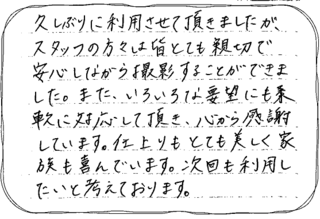 久しぶりに利用させて頂きましたが、
スタッフの方々は皆とても親切で
安心しながら撮影することができま
した。また、いろいろな要望にも気
軽に対応して頂き、心から感謝
しています。仕上りもとても美しく家
族も喜んでいます。次回も利用し
たいと考えております。